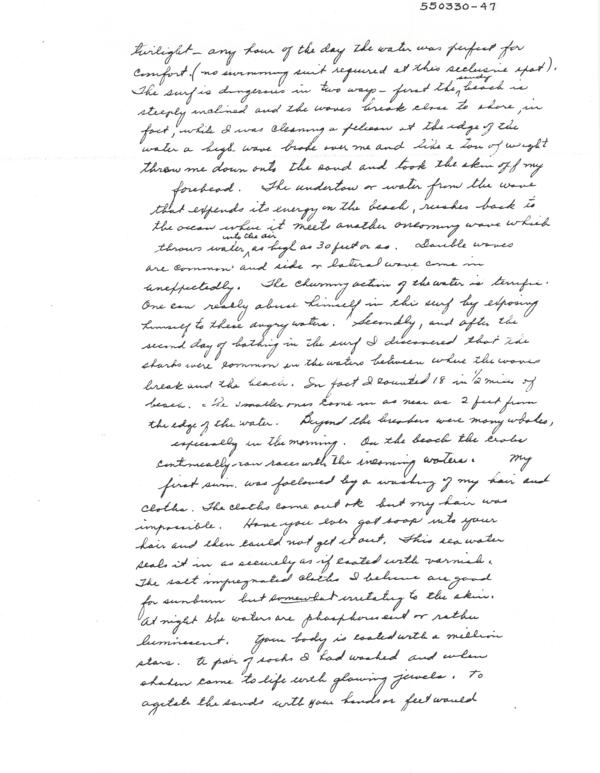 550330-47
twilight - any hour of the day the water was perfect for
comfort. (no swimming suit required at this seclusive spot).
The surf is dangerous in two ways - first the sandy beach is
steeply inclined and the waves break close to shore, in
fact, while I was cleaning a pelican at the edge of the
water a high wave broke over me and like a ton of weight
threw me down onto the sand and took the skin off my
forehead. The undertow or water from the wave
that expends its energy on the beach, rushes back to
the ocean where it meets another oncoming wave which
throws water into the air as high as 30 feet or so. Double waves
are common and side or lateral wave come in
unexpectedly. The churning action of the water is terrific.
One can really abuse himself in this surf by exposing
himself to these angry waters. Secondly, and after the
second day of bathing in the surf I discovered that the
sharks were common in the waters between where the waves
break and the beach. In fact I counted 18 in 1/2 miles of
beach. The smaller ones come in as near as 2 feet from
the edge of the water. Beyond the breakers were many whales,
especially in the morning. On the beach the crabs
continually ran races with the incoming waters. My
first swim was followed by a washing of my hair and
cloths. The cloths came out ok but my hair was
impossible. Have you ever got soap into your
hair and then could not get it out. This sea water
seals it in as securely as if coated with varnish.
The salt impregnated cloths I believe are good
for sunburn but somewhat irritating to the skin.
At night the waters are phosphorescent or rather
luminescent. Your body is coated with a million
stars. A pair of socks I had washed and when
shaken came to life with glowing jewels. To
agitate the sands with your hands or feet would